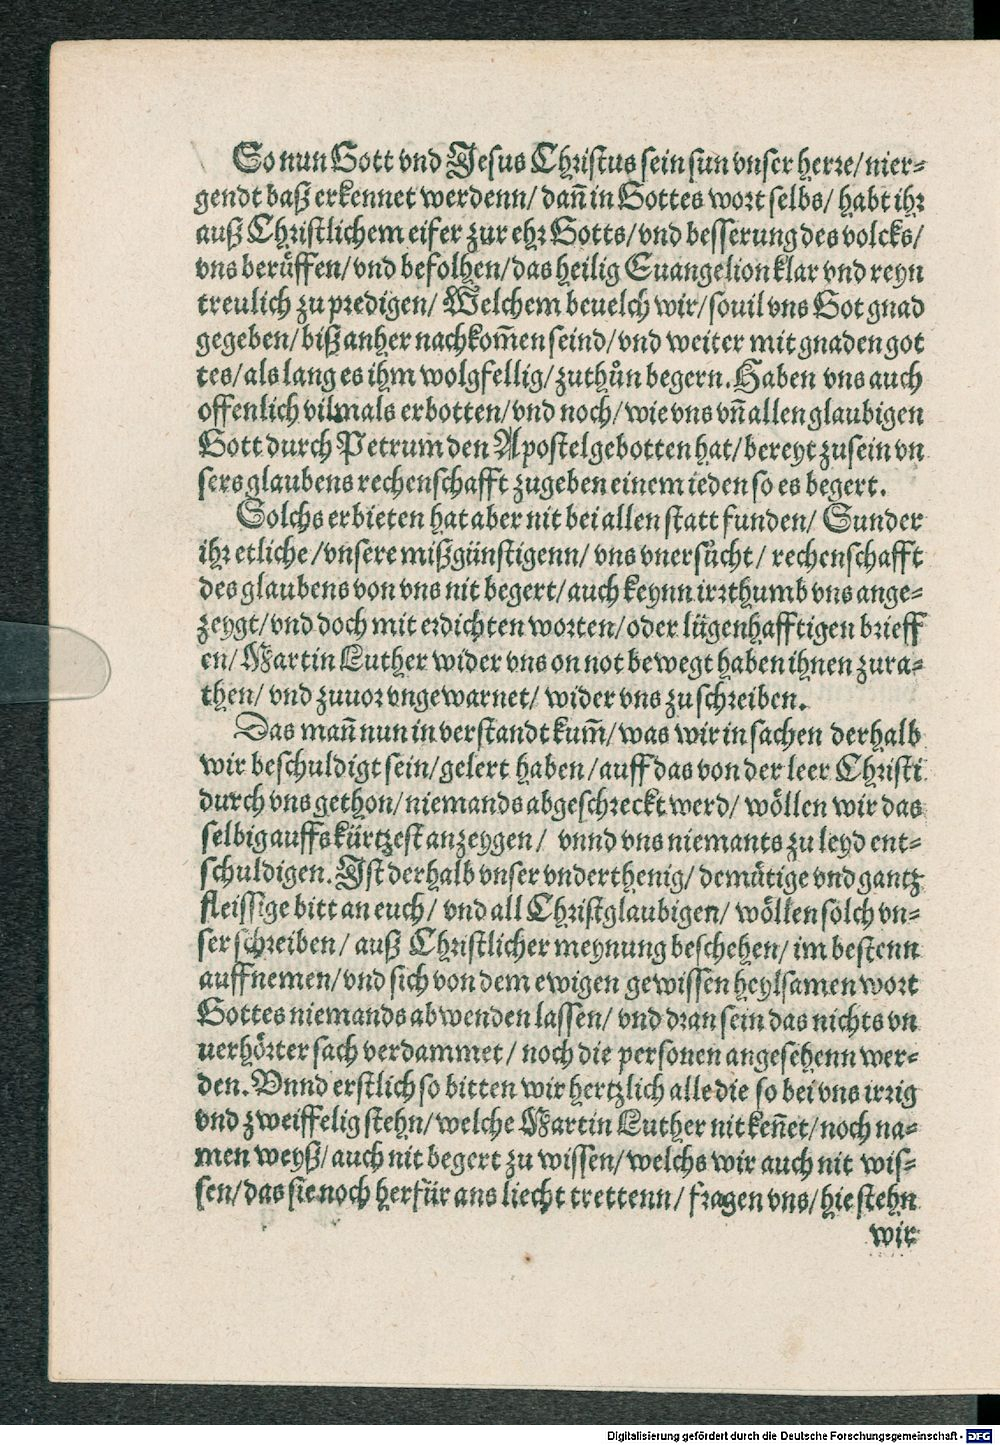 So nun Gott vnd Jesus Christus sein sun vnser herre/ nier-
gendt baß erkennet werdenn/ dañ in Gottes wort selbs/ habt ihr
auß Christlichem eifer zur ehr Gotts/ vnd besserung des volcks/
vns berüffen/ vnd befolhen/ das heilig Euangelion klar vnd reyn
treulich zu predigen/ Welchem beuelch wir/ souil vns Got gnad
gegeben/ biß anher nachkom̄en seind/ vnd weiter mit gnaden got
tes/ als lang es ihm wolgfellig/ zuthůn begern. Haben vns auch
offenlich vilmals erbotten/ vnd noch/ wie vns vñ allen glaubigen
Gott durch Petrum den Apostel gebotten hat/ bereyt zusein vn
sers glaubens rechenschafft zugeben einem ieden so es begert.
Solchs erbieten hat aber nit bei allen statt funden/ Sunder
ihr etliche/ vnsere mißgünstigenn/ vns vnersůcht/ rechenschafft
des glaubens von vns nit begert/ auch keynn irrthumb vns ange-
zeygt/ vnd doch mit erdichten worten/ oder lügenhafftigen brieff
en/ Martin Luther wider vns on not bewegt haben ihnen zura-
then/ vnd zuuor vngewarnet/ wider vns zu schreiben.
Das mañ nun in verstandt kum̄/ was wir in sachen derhalb
wir beschuldigt sein/ gelert haben/ auff das von der leer Christi
durch vns gethon/ niemands abgeschreckt werd/ wöllen wir das
selbig auffs kürtzest anzeygen/ vnnd vns niemants zu leyd ent-
schuldigen. Ist derhalb vnser vnderthenig/ demütige vnd gantz
fleissige bitt an euch/ vnd all Christglaubigen/ wöllen solch vn-
ser schreiben/ auß Christlicher meynung beschehen/ im bestenn
auffnemen/ vnd sich von dem ewigen gewissen heylsamen wort
Gottes niemands abwenden lassen/ vnd dran sein das nichts vn
uerhörter sach verdammet/ noch die personen angesehenn wer-
den. Vnnd erstlich so bitten wir hertzlich alle die so bei vns irrig
vnd zweiffelig stehn/ welche Martin Luther nit keñet/ noch na-
men weyß/ auch nit begert zu wissen/ welchs wir auch nit wis-
sen/ das sie noch herfür ans liecht trettenn/ fragen vns/ hie stehn
wir
Digitalisierung gefördert durch die Deutsche Forschungsgemeinschaft - DFG